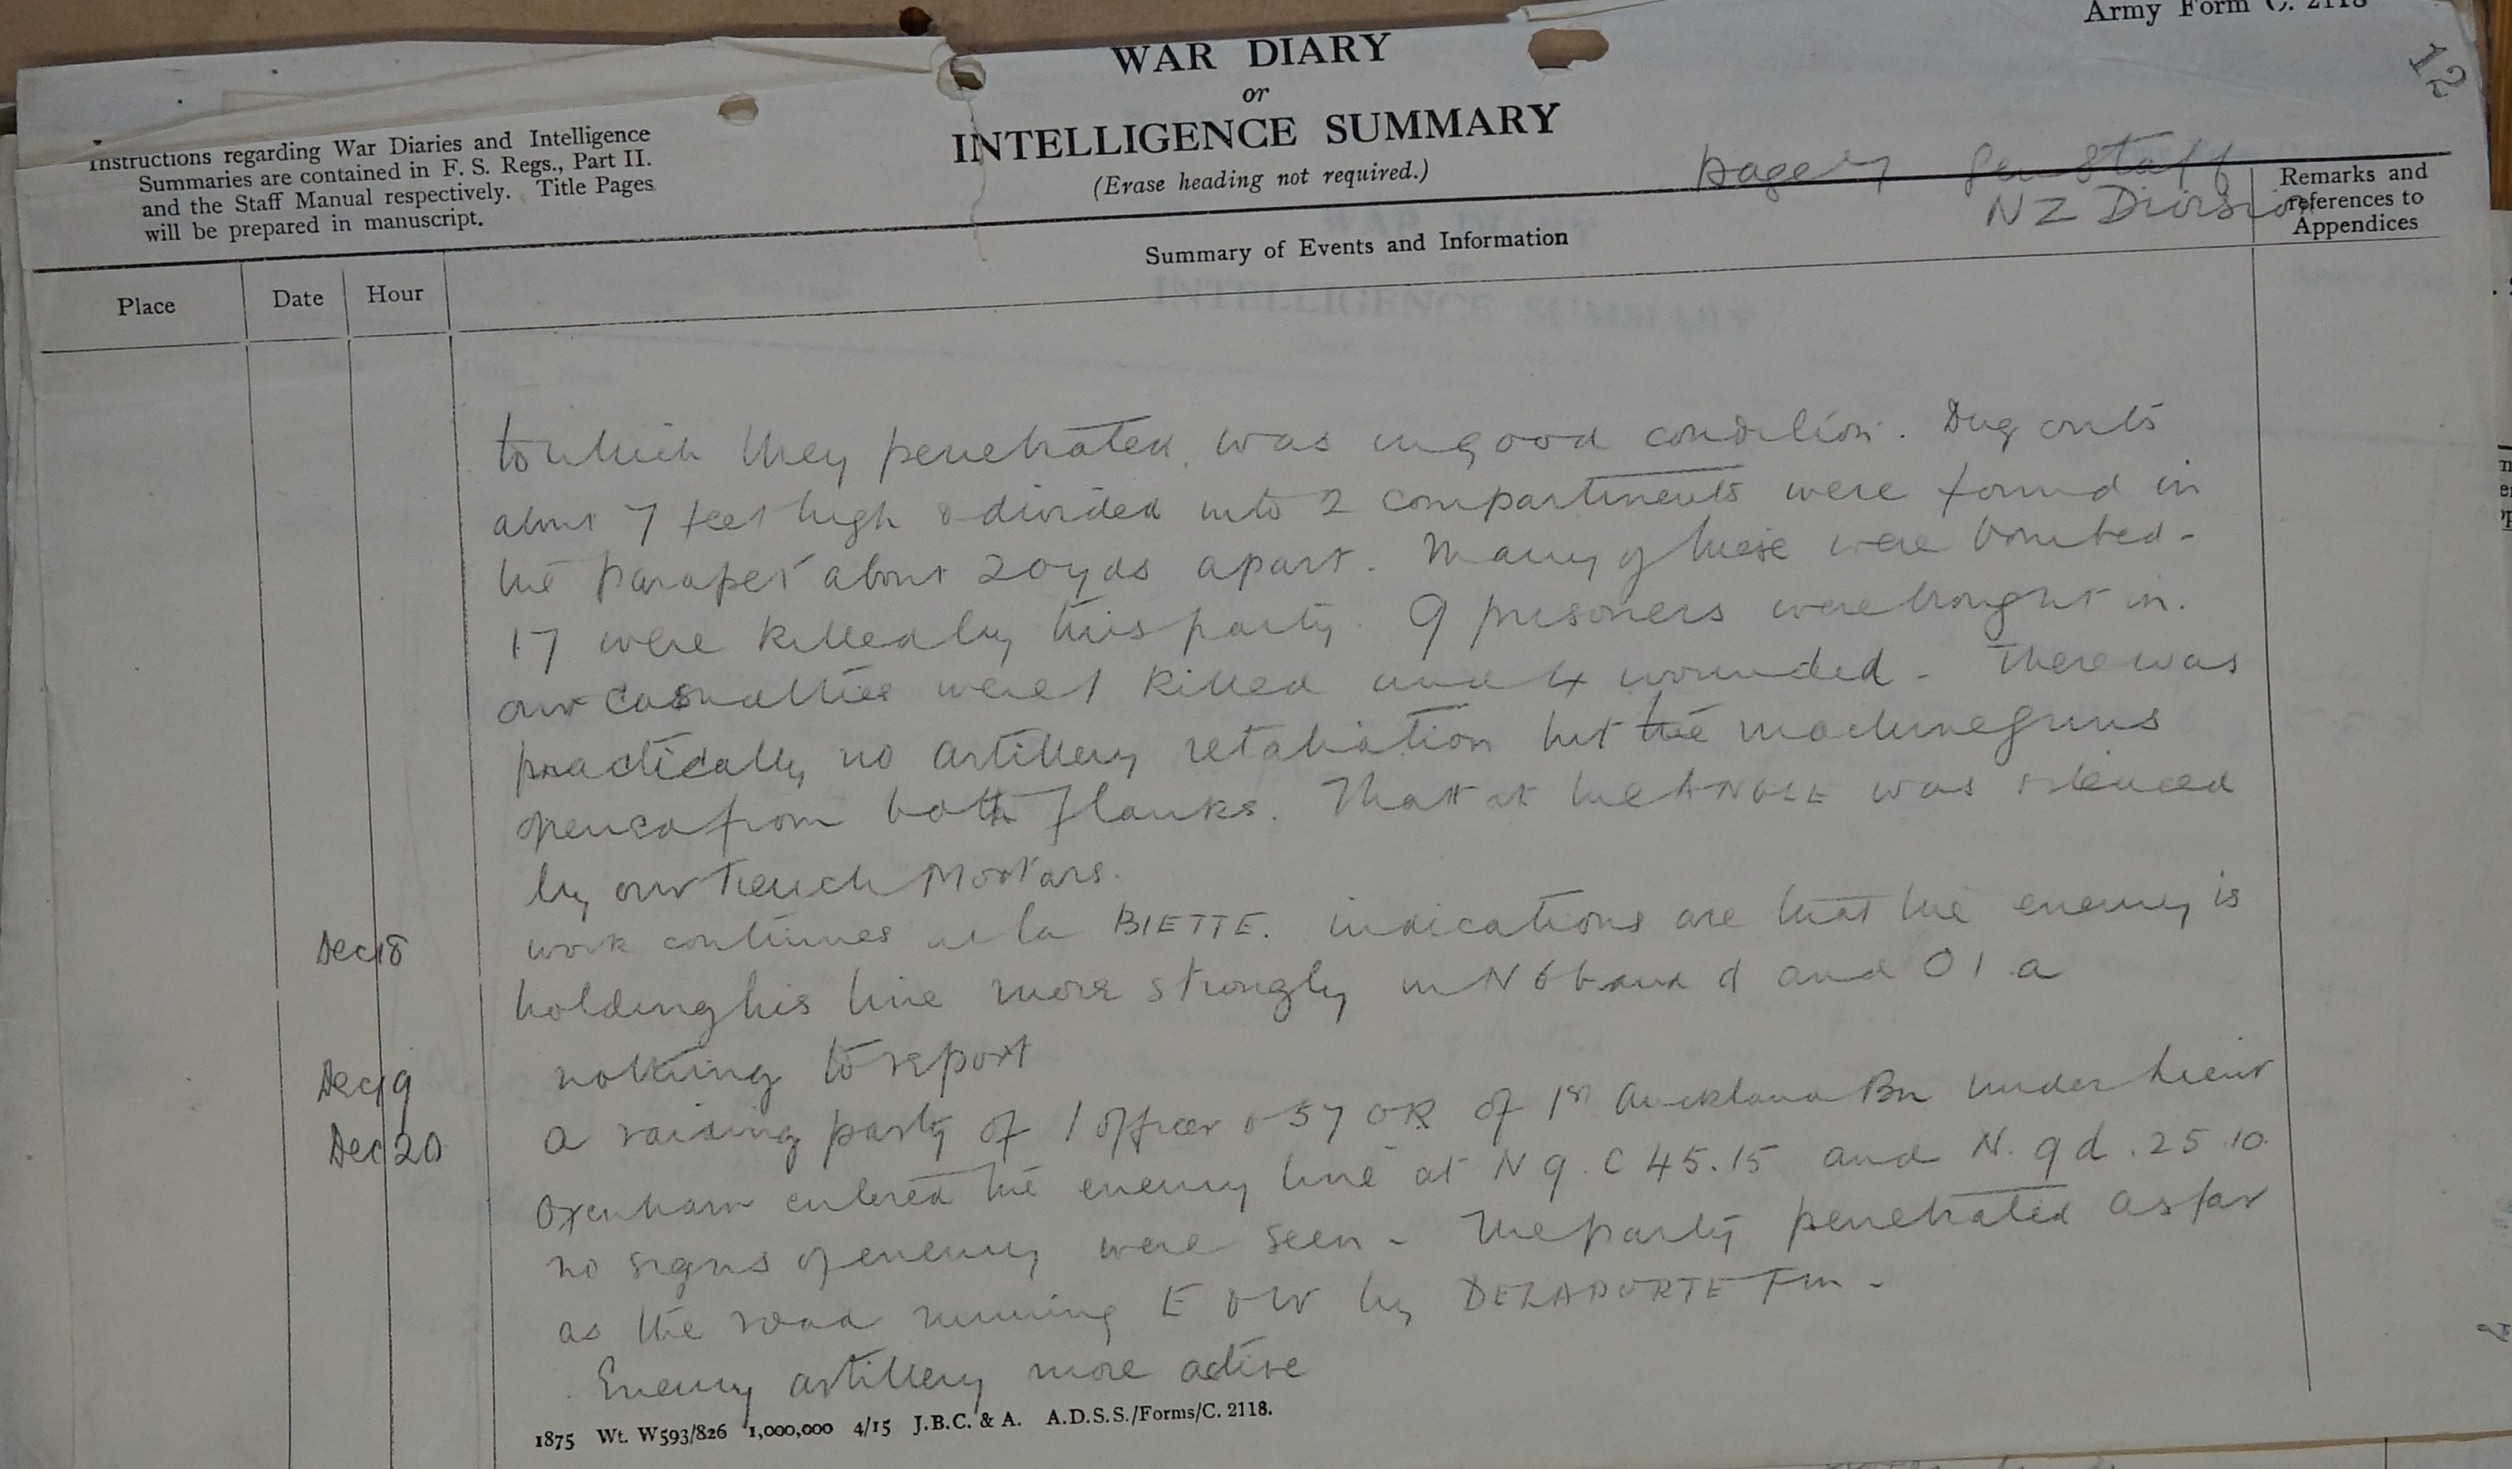 Army Form C. 2118
12
WAR DIARY
or
INTELLIGENCE SUMMARY
(Erase heading not required.)
Instructions regarding War Diaries and Intelligence
Summaries are contained in F. S. Regs., Part II.
and the Staff Manual respectively. Title Pages
will be prepared in manuscript.
Gen Staff
NZ Division
Remarks and
references to
Appendices
Summary of Events and Information
Place Date Hour
to which they penetrated was in good condition. Dug outs
about 7 feet high & divided into 2 compartments were found in
the parapet about 20 yds apart. Many of these were bombed -
17 were killed by this party. 9 prisoners were brought in.
our casualties were 1 killed and 4 wounded - There was
practically no artillery retaliation but the machine guns
opened from both Flanks. That at the ANGLE was silenced
by our Trench Mortars.
Dec 18 work continues at la BIETTE. indications are that the enemy is
holding his line more strongly in N 6 b and d and O 1 a
Dec 19 nothing to report
Dec 20 a raiding party of 1 officer & 57 OR of 1st Auckland Bn under Lieut
Oxenham entered the enemy line at N 9. C 45.15 and N. 9 d. 25 10
no signs of enemy were seen - The party penetrated as far
as the road running E & W by DELAPORTE Fm -
Enemy artillery more active
1875 Wt. W593/826 1,000,000 4/15 J.B.C. & A. A.D.S.S./Forms/C. 2118.